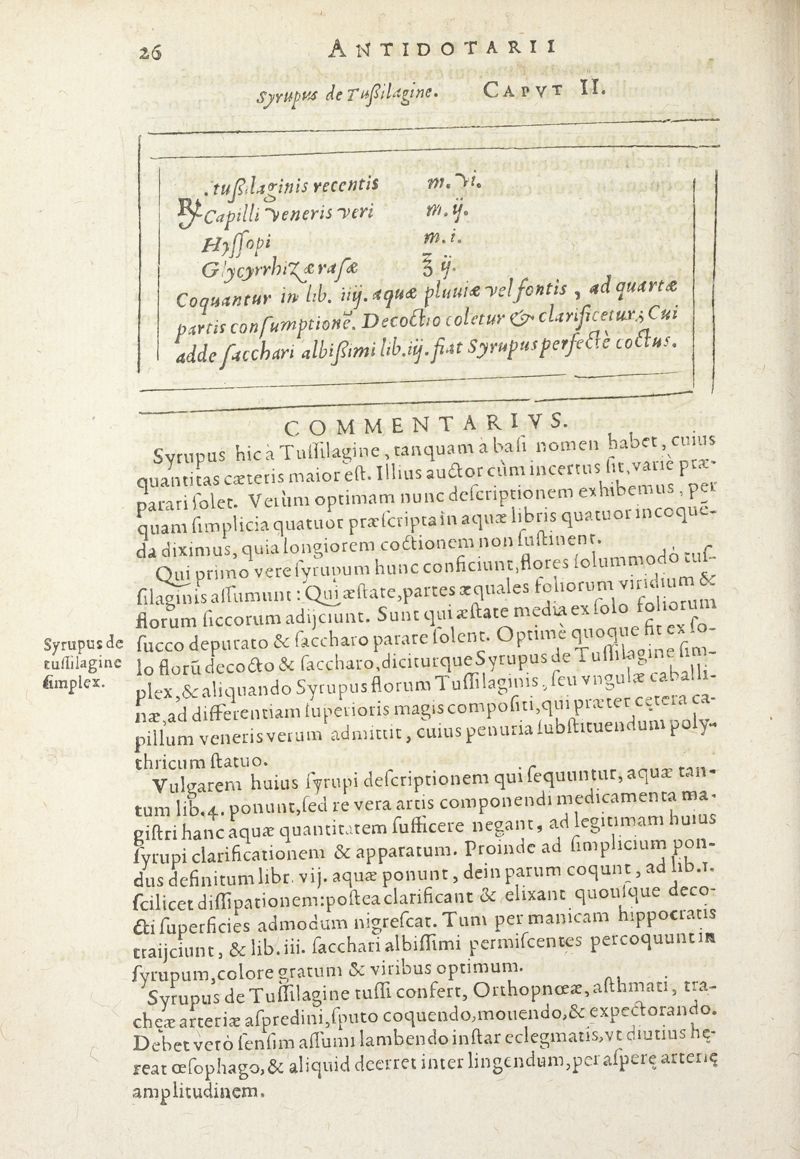 26 ANTIDOTARII
Syrupus de Tußilagine. CAPVT II.
℞. tußilaginis recentis m. vi.
Capilli veneris veri m. ij.
Hyſſopi m. i.
Glycyrrhizæ raſæ ℥ ij.
Coquantur in lib. iiij. aquæ pluuiæ vel fontis, ad quartæ
partis conſumptionē. Decoctio coletur & clarificetur; Cui
adde ſacchari albißimi lib. iij. fiat Syrupus perfecte coctus.
COMMENTARIVS.
Syrupus hic à Tuſſilagine, tanquam a baſi nomen habet, cuius
quantitas cæteris maior eſt. Illius auctor cùm incertus ſit, varie præ-
parari ſolet. Verùm optimam nunc deſcriptionem exhibemus, per
quam ſimplicia quatuor præſcripta in aquæ libris quatuor incoquē-
da diximus, quia longiorem coctionem non ſuſtinent.
Qui primo vere ſyrupum hunc conficiunt, flores ſolummodo tuſ-
ſilaginis aſſumunt: Qui æſtate, partes æquales foliorum viridium &
florum ſiccorum adijciunt. Sunt qui æſtate media ex ſolo foliorum
ſucco depurato & ſaccharo parare ſolent. Optime quoque fit ex ſo-
lo florū decocto & ſaccharo, diciturque Syrupus de Tuſſilagine ſim-
plex, & aliquando Syrupus florum Tuſſilaginis, ſeu vngulæ caballi-
næ, ad differentiam ſuperioris magis compoſiti, qui præter cętera ca-
pillum veneris verum admittit, cuius penuria ſubſtituendum poly-
thricum ſtatuo.
Syrupus de
tuſſilagine
ſimplex.
Vulgarem huius ſyrupi deſcriptionem qui ſequuntur, aquæ tan-
tum lib. 4. ponunt, ſed re vera artis componendi medicamenta ma-
giſtri hanc aquæ quantitatem ſufficere negant, ad legitimam huius
ſyrupi clarificationem & apparatum. Proinde ad ſimplicium pon-
dus definitum libr. vij. aquæ ponunt, dein parum coqunt, ad lib. 1.
ſcilicet diſſipationem: poſtea clarificant & elixant quouſque deco-
cti ſuperficies admodum nigreſcat. Tum per manicam hippocratis
traijciunt, & lib. iii. ſacchari albiſſimi permiſcentes percoquunt in
ſyrupum, colore gratum & viribus optimum.
Syrupus de Tuſſilagine tuſſi confert, Orthopnœæ, aſthmati, tra-
cheæ arteriæ aſpredini, ſputo coquendo, mouendo, & expectorando.
Debet verò ſenſim aſſumi lambendo inſtar eclegmatis, vt diutius hę-
reat œſophago, & aliquid deerret inter lingendum, per aſperę arterię
amplitudinem.